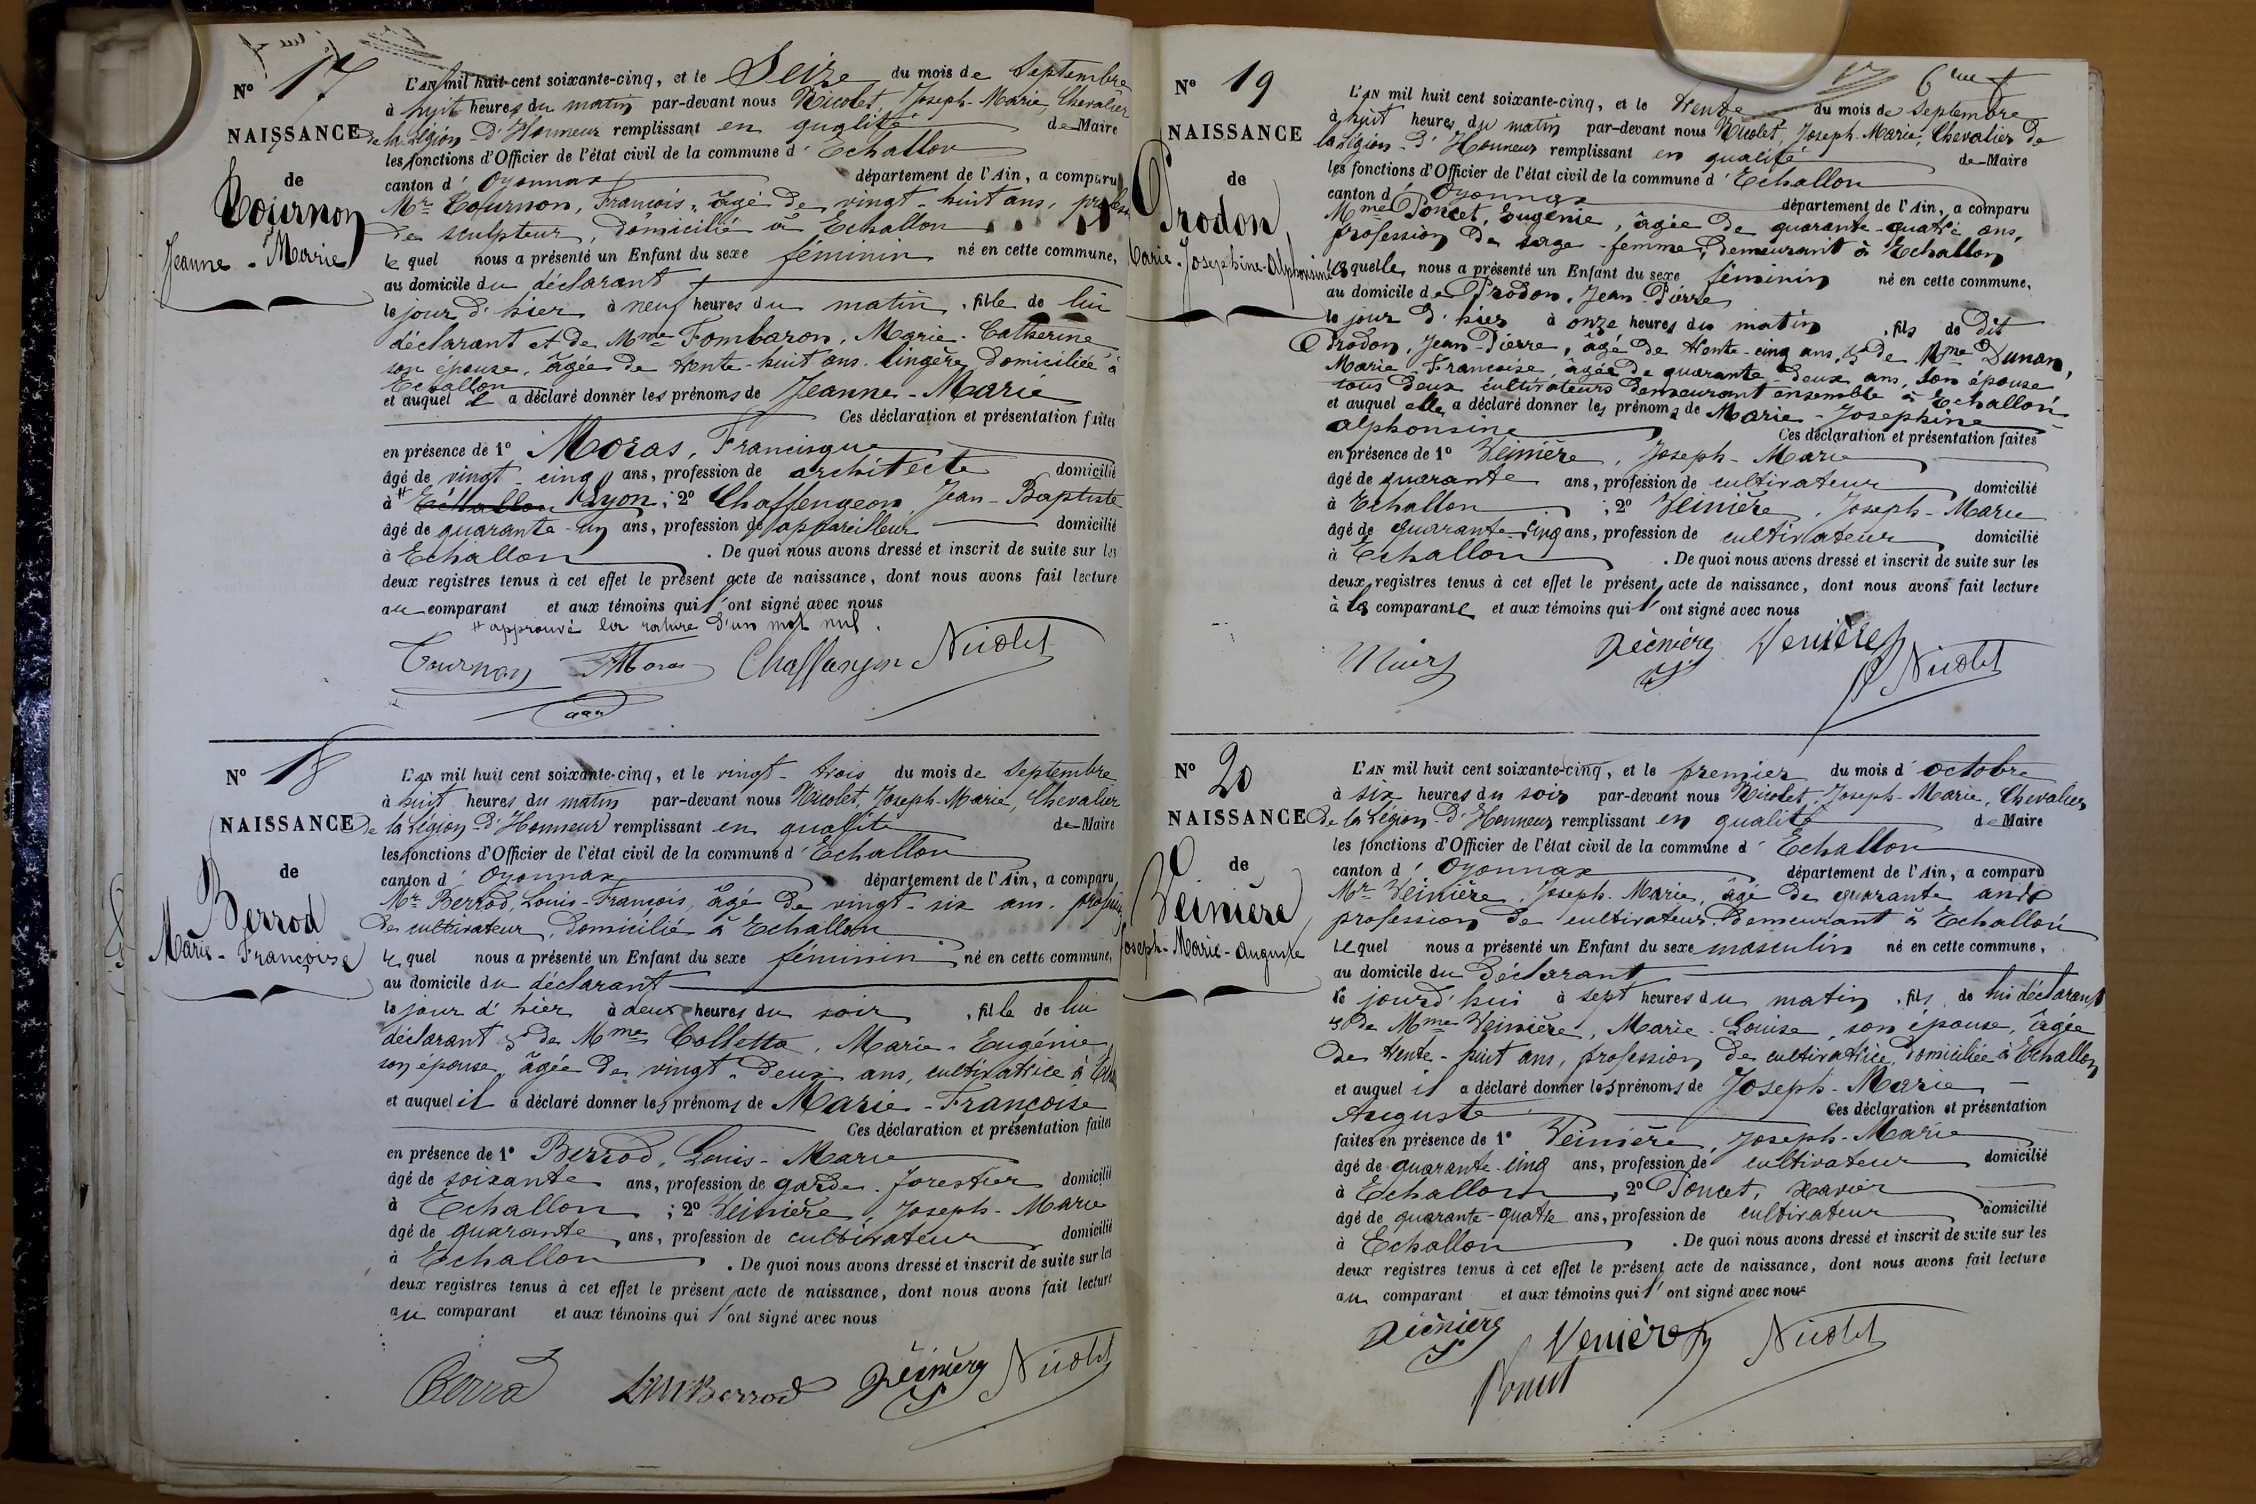 N° 17
NAISSANCE
de
Tournon
Jeanne-Marie
L'AN mil huit cent soixante-cinq, et le Seize du mois de Septembre
à huit heures du matin par-devant nous Nicolet, Joseph-Marie, Chevalier
de la Légion-d'Honneur remplissant en qualité de Maire
les fonctions d'Officier de l'état civil de la commune d'Echallon
canton d'Oyonnax département de l'Ain, a comparu
Mr Tournon, François, âgé de vingt-huit ans,
de sculpteur, domicilié à Echallon
lequel nous a présenté un Enfant du sexe féminin né en cette commune,
au domicile du déclarant
le jour d'hier à neuf heures du matin, fille de lui
déclarant et de Mme Fombaron, Marie-Catherine
son épouse, âgée de trente-huit ans, lingère domiciliée à
Echallon
et auquel il a déclaré donner les prénoms de Jeanne-Marie
Ces déclaration et présentation faites
en présence de 1° Moras, Francisque
âgé de vingt-cinq ans, profession de architecte domicilié
à # Echallon Lyon; 2° Chaffengeon Jean-Baptiste
âgé de quarante-un ans, profession de appareilleur domicilié
à Echallon. De quoi nous avons dressé et inscrit de suite sur les
deux registres tenus à cet effet le présent acte de naissance, dont nous avons fait lecture
au comparant et aux témoins qui l'ont signé avec nous
# approuvé la rature d'un mot nul.
Tournon Moras Chaffanjon Nicolet
N° 18
NAISSANCE
de
Berrod
Marie-Françoise
L'AN mil huit cent soixante-cinq, et le vingt-trois du mois de Septembre
à huit heures du matin par-devant nous Nicolet, Joseph-Marie, Chevalier
de la Légion-d'Honneur remplissant en qualité de Maire
les fonctions d'Officier de l'état civil de la commune d'Echallon
canton d'Oyonnax département de l'Ain, a comparu
Mr Berrod, Louis-François, âgé de vingt-six ans,
de cultivateur, domicilié à Echallon
lequel nous a présenté un Enfant du sexe féminin né en cette commune,
au domicile du déclarant
le jour d'hier à deux heures du soir, fille de lui
déclarant & de Mme Colletta, Marie-Eugénie,
son épouse, âgée de vingt-deux ans, cultivatrice à
et auquel il a déclaré donner les prénoms de Marie-Françoise
Ces déclaration et présentation faites
en présence de 1° Berrod, Louis-Marie
âgé de soixante ans, profession de garde-forestier domicilié
à Echallon; 2° Veinière, Joseph-Marie
âgé de quarante ans, profession de cultivateur domicilié
à Echallon. De quoi nous avons dressé et inscrit de suite sur les
deux registres tenus à cet effet le présent acte de naissance, dont nous avons fait lecture
au comparant et aux témoins qui l'ont signé avec nous
Berrod Berrod Veinière Nicolet
N° 19
NAISSANCE
de
Prodon
Marie-Josephine-Alphonsine
L'AN mil huit cent soixante-cinq, et le trente du mois de Septembre
à huit heures du matin par-devant nous Nicolet, Joseph-Marie, Chevalier de
la Légion-d'Honneur remplissant en qualité de Maire
les fonctions d'Officier de l'état civil de la commune d'Echallon
canton d'Oyonnax département de l'Ain, a comparu
Mme Poncet, Eugénie, âgée de quarante-quatre ans,
profession de sage-femme, demeurant à Echallon
laquelle nous a présenté un Enfant du sexe féminin né en cette commune,
au domicile de Prodon, Jean-Pierre
le jour d'hier à onze heures du matin, fils de dit
Prodon, Jean-Pierre, âgé de trente-cinq ans, & de Mme Dunan,
Marie-Françoise, âgée de quarante-deux ans, son épouse
tous deux cultivateurs demeurant ensemble à Echallon
et auquel elle a déclaré donner les prénoms de Marie-Josephine
alphonsine
Ces déclaration et présentation faites
en présence de 1° Veinière, Joseph-Marie
âgé de quarante ans, profession de cultivateur domicilié
à Echallon; 2° Veinière, Joseph-Marie
âgé de quarante-cinq ans, profession de cultivateur domicilié
à Echallon. De quoi nous avons dressé et inscrit de suite sur les
deux registres tenus à cet effet le présent acte de naissance, dont nous avons fait lecture
à la comparante et aux témoins qui l'ont signé avec nous
Veinière Venière Nicolet
N° 20
NAISSANCE
de
Veinière
Joseph-Marie-Auguste
L'AN mil huit cent soixante-cinq, et le premier du mois d'octobre
à six heures du soir par-devant nous Nicolet, Joseph-Marie, Chevalier
de la Légion-d'Honneur remplissant en qualité de Maire
les fonctions d'Officier de l'état civil de la commune d'Echallon
canton d'Oyonnax département de l'Ain, a comparu
Mr Veinière, Joseph-Marie, âgé de quarante ans
profession de cultivateur demeurant à Echallon
lequel nous a présenté un Enfant du sexe masculin né en cette commune,
au domicile du déclarant
le jourd'hui à sept heures du matin, fils de lui déclarant
& de Mme Veinière, Marie-Louise, son épouse, âgée
de trente-huit ans, profession de cultivatrice, domiciliée à Echallon
et auquel il a déclaré donner les prénoms de Joseph-Marie
Auguste Ces déclaration et présentation
faites en présence de 1° Veinière, Joseph-Marie
âgé de quarante-cinq ans, profession de cultivateur domicilié
à Echallon, 2° Poncet, Xavier
âgé de quarante-quatre ans, profession de cultivateur domicilié
à Echallon. De quoi nous avons dressé et inscrit de suite sur les
deux registres tenus à cet effet le présent acte de naissance, dont nous avons fait lecture
au comparant et aux témoins qui l'ont signé avec nous
Veinière Venière Nicolet
Poncet